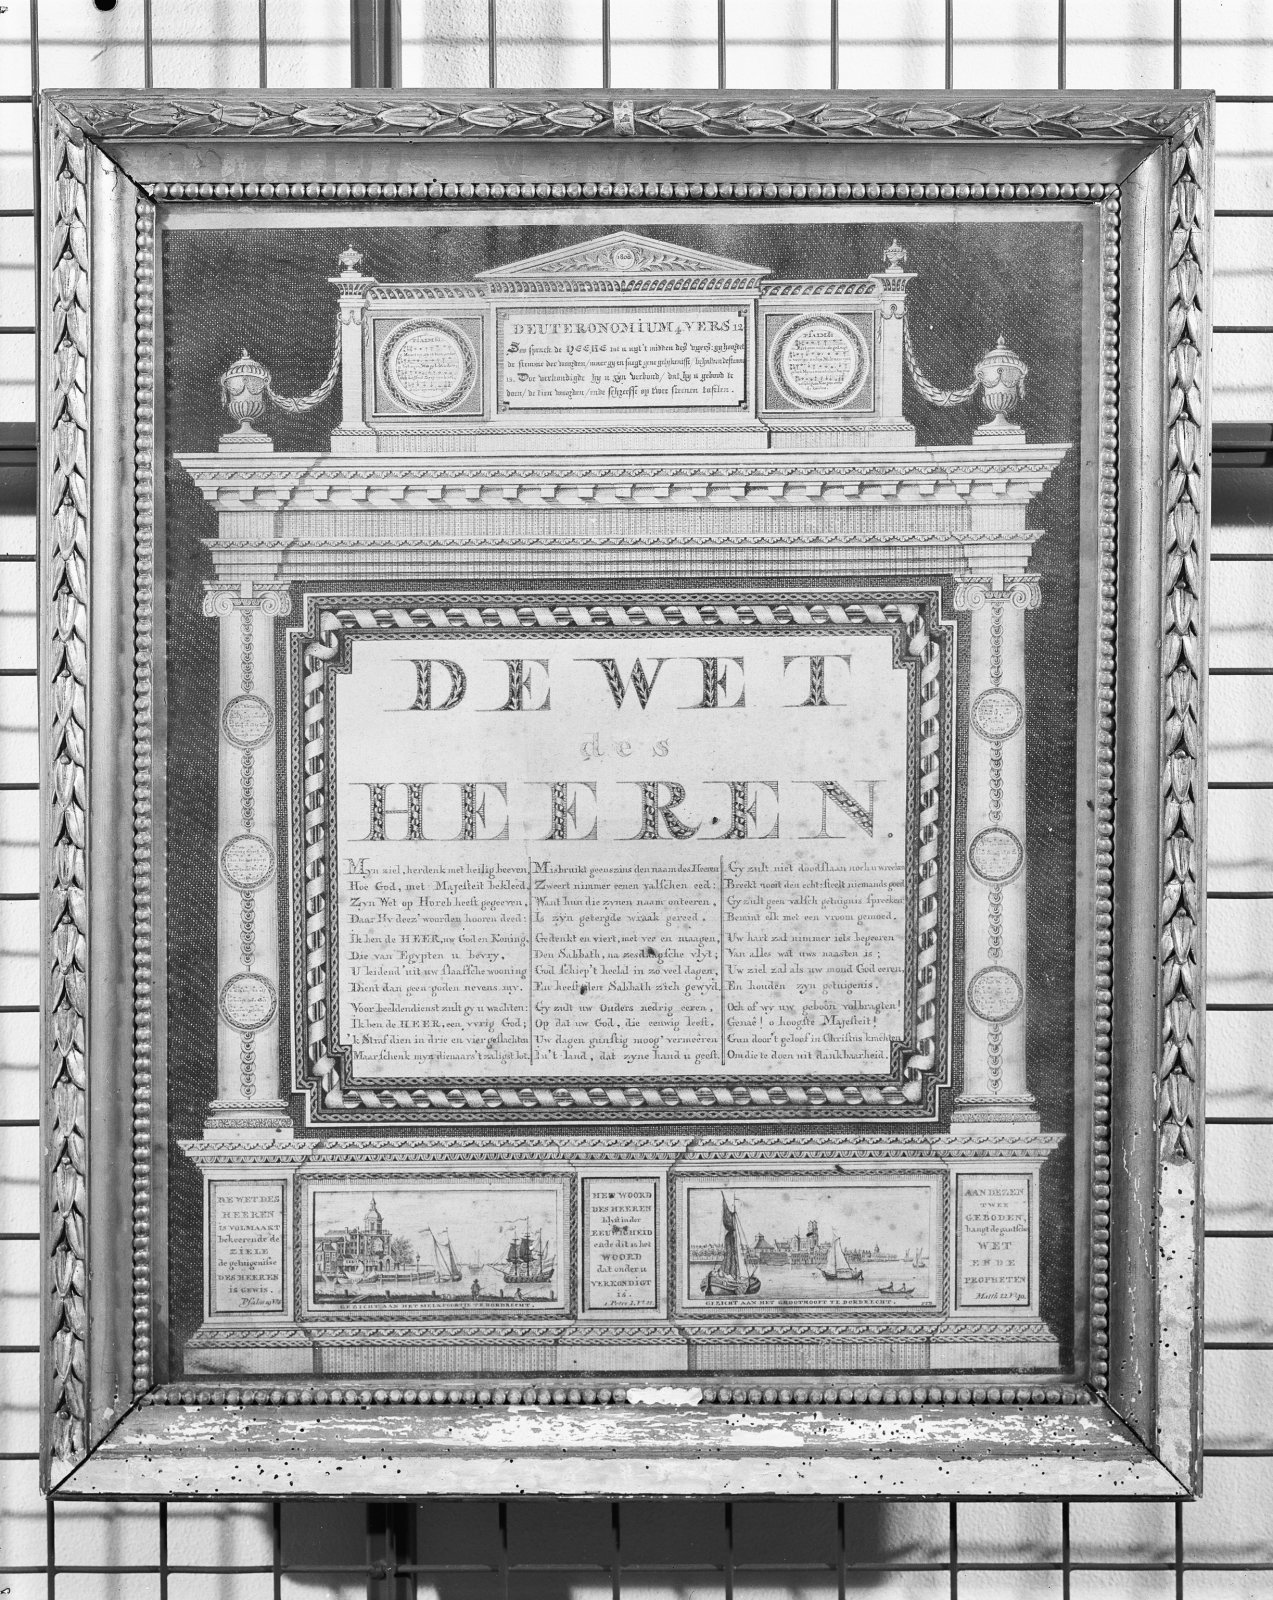 1808
DEUTERONOMIUM 4 VERS 12
Soo sprack de HEERE tot u uyt't midden des vyers: gy hoordet
de stemme der woorden/maer gy en saegt gene gelykenisse/behalven de stemme
13. Doe verkondigde hy u zyn verbond/dat hy u gebood te
doen/de tien woorden/ende schreefse op twee steenen tafelen.
DE WET
des
HEEREN.
Myn ziel, herdenk met heilig beeven,
Hoe God, met Majesteit bekleed,
Zyn Wet op Horeb heeft gegeeven,
Daar Hy deez' woorden hooren deed:
Ik ben de HEER, uw God en Koning,
Die van Egypten u bevry,
U leidend' uit uw slaafsche wooning
Dient dan geen goden nevens my.
Voor beeldendienst zult gy u wachten:
Ik ben de HEER, een yvrig God;
'k Straf dien in drie en vier geslachten
Maar schenk myn dienaars 't zaligst lot.
Misbruikt geenszins den naam des Heeren
Zweert nimmer eenen valschen eed:
Want hun die zynen naam onteeren,
Is zyn getergde wraak gereed.
Gedenkt en viert, met vee en maagen,
Den Sabbath, na zesdaagsche vlyt;
God schiep't heelal in zo veel dagen,
En heeft den Sabbath zich gewyd.
Gy zult uw Ouders nedrig eeren,
Op dat uw God, die eeuwig leeft,
Uw dagen gunstig moog' vermeêren
In't land, dat zyne hand u geeft.
Gy zult niet doodslaan noch u wreeken
Breekt nooit den echt: steelt niemands goed
Gy zult geen valsch getuignis spreeken
Bemint elk met een vroom gemoed.
Uw hart zal nimmer iets begeeren
Van alles wat uws naasten is;
Uw ziel zal als uw mond God eeren,
En houden zyn getuigenis.
Och of wy uw geboôn volbragten!
Genaê! o hoogste Majesteit!
Gun door't geloof in Christus krachten
Om die te doen uit dankbaarheid.
DE WET DES
HEEREN
IS VOLMAAKT
bekeerende de
ZIELE
de getuigenisse
DES HEEREN
IS GEWIS.
Psalm 19 Vs 8
GEZICHT AAN HET MELKPOORTJE TE DORDRECHT.
HET WOORD
DES HEEREN
blyft in der
EEUWIGHEID
ende dit is het
WOORD
dat onder u
VERKONDIGT
is.
1. Petri 1, Vs 25
GEZICHT AAN HET GROOTHOOFT TE DORDRECHT.
AAN DEZEN
TWEE
GEBODEN,
hangt de gantsche
WET
ENDE
PROPHETEN
Matth 22 Vs 40